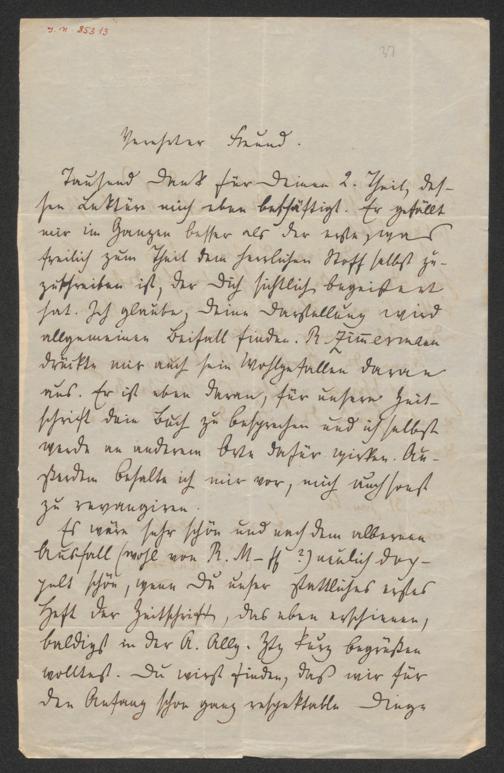 J. N. 85313
37
Verehrter Freund.
Tausend Dank für Deinen 2. Theil, des-
sen Lektüre mich eben beschäftigt. Er gefällt
mir im Ganzen besser als der erste, was
freilich zum Theil dem herrlichen Stoff selbst zu-
zuschreiben ist, der Dich sichtlich begeistert
hat. Ich glaube, Deine Darstellung wird
allgemeinen Beifall finden. R. Zimmermann
drückte mir auch sein Wohlgefallen daran
aus. Er ist eben daran, für unsere Zeit-
schrift dein Buch zu besprechen und ich selbst
werde an anderem Orte dafür wirken. Au-
ßerdem behalte ich mir vor, mich auch sonst
zu revangiren.
Es wäre sehr schön und nach dem albernen
Ausfall (wohl von R. M–ff ?) neulich dop-
pelt schön, wenn Du unser stattliches erstes
Heft der Zeitschrift, das eben erschienen,
baldigst in der A. Allg. Ztg kurz begrüßen
wolltest. Du wirst finden, daß wir für
den Anfang schon ganz respektable Dinge